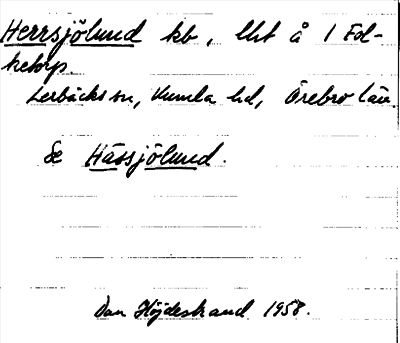 Herrsjölund kb, lht å 1 Fol-
ketorp
Lerbäcks sn, Kumla hd, Örebro län
Se Hässjölund.
Dan Höjdestrand 1958.